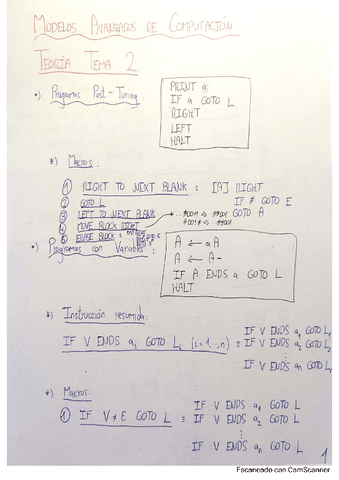 MODELOS AVANZADOS DE COMPUTACIÓN
TEORÍA TEMA 2
•) Programas Post-Turing:
PRINT a
IF a GOTO L
RIGHT
LEFT
HALT
*) Macros:
① RIGHT TO NEXT BLANK ≡ [A] RIGHT
IF # GOTO E
GOTO A
② GOTO L
③ LEFT TO NEXT BLANK
④ MOVE BLOCK RIGHT
⑤ ERASE BLOCK
•) Programas con Variables:
A ← aA
A ← A-
IF A ENDS a GOTO L
HALT
*) Instrucción resumida:
IF V ENDS ai GOTO Li (i=1,..,n)
IF V ENDS a1 GOTO L1
IF V ENDS a2 GOTO L2
⋮
IF V ENDS an GOTO Ln
*) Macros:
① IF V ≠ ε GOTO L ≡ IF V ENDS a1 GOTO L
IF V ENDS a2 GOTO L
⋮
IF V ENDS an GOTO L
1
Escaneado con CamScanner